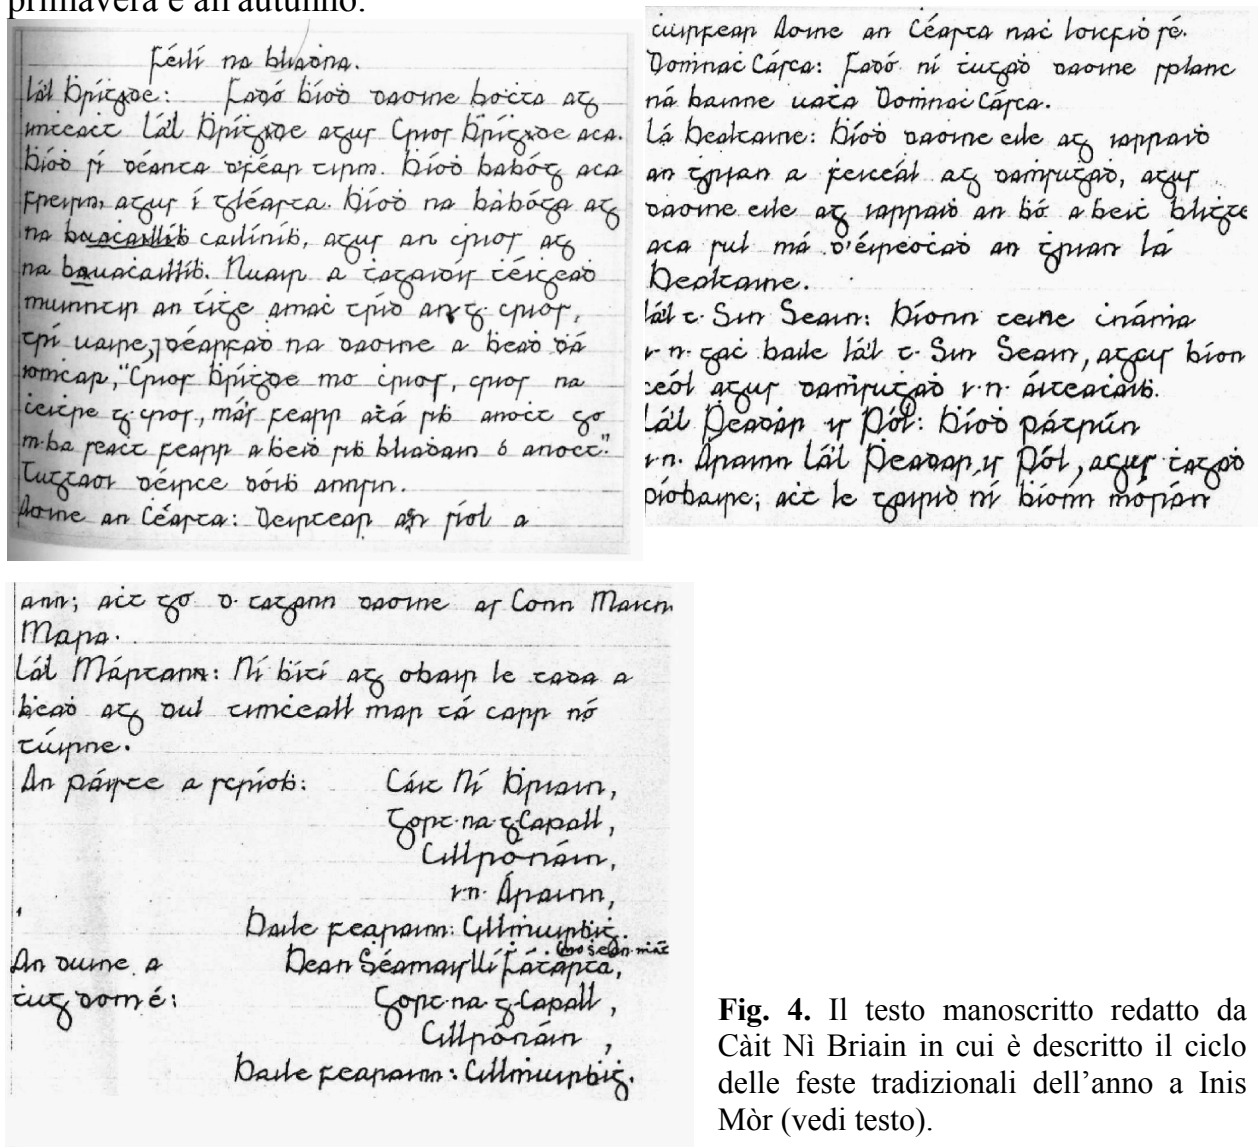 primavera e all'autunno.
Féilí na bliaḋna.
Lá'l Ḃríġde: Fadó ḃíoḋ daoine boċta ag
imṫeaċt Lá'l Ḃríġde agus Crios Ḃríġde aca.
Ḃíoḋ sí déanta d'féar tirm. Ḃíoḋ babóg aca
freisin, agus í gléasta. Ḃíoḋ na babóga ag
na buaċaillíḃ cailíníḃ, agus an ċrios ag
na buaċaillíḃ. Nuair a ṫagaidís ṫéiġeaḋ
muinntir an tíġe amaċ tríd an g-crios,
trí uaire, ⁊ déarfaḋ na daoine a ḃeaḋ dá
iomċar, "Crios Ḃríġde mo ċrios, crios na
ċeiṫre g-cros, más fearr atá siḃ anoċt go
m-ba seaċt fearr a ḃeiḋ siḃ bliaḋain ó anoċt."
Tugtaoi déirce dóiḃ annsin.
Aoine an Céasta: Deirtear an síol a
ċuirfear Aoine an Céasta naċ loicfiḋ sé.
Doṁnaċ Cásca: Fadó ní ṫugaḋ daoine splanc
ná bainne uaṫa Doṁnaċ Cásca.
Lá Bealtaine: Ḃíoḋ daoine eile ag iarraiḋ
an ġrian a feiceál ag daṁsuġaḋ, agus
daoine eile ag iarraiḋ an ḃó a ḃeiṫ bliġte
aca sul má d'éireoċaḋ an ġrian lá
Bealtaine.
Lá'l t-Sin Seain: Bíonn teine ċnáṁa
i-n-gaċ baile lá'l t-Sin Seain, agus bíon
ceól agus daṁsuġaḋ i-n-áiteaċaiḃ.
Lá'l Peadar is Pól: Ḃíoḋ pátrún
i-n-Árainn Lá'l Peadar is Pól, agus ṫagaḋ
píobaire; aċt le gairid ní ḃíonn mórán
ann; aċt go d-tagann daoine as Conn
Mara.
Lá'l Mártann: Ní ḃítí ag obair le rada a
ḃeaḋ ag dul timċeall mar tá carr nó
túirne.
An páiste a scríoḃ: Cáit Ní Ḃriain,
Gort-na-gCapall,
Cillrónáin,
i-n-Árainn,
Baile fearainn: Cillṁuirḃiġ.
mo ṡean-ṁáṫ
An duine a Bean Séamais Uí Fátarta,
ṫug dom é: Gort-na-gCapall,
Cillrónáin,
Baile fearainn: Cillṁuirḃiġ.
Fig. 4. Il testo manoscritto redatto da
Càit Nì Briain in cui è descritto il ciclo
delle feste tradizionali dell'anno a Inis
Mòr (vedi testo).